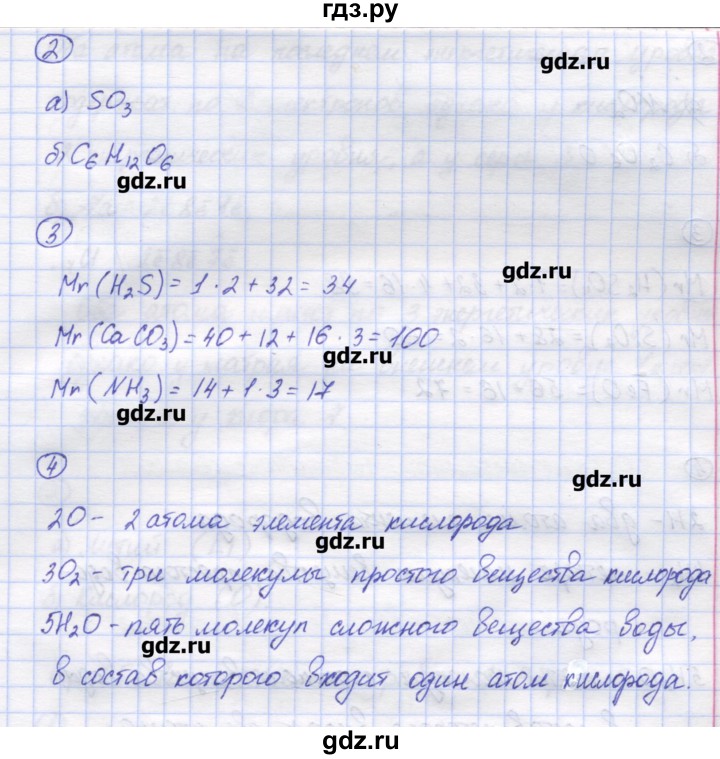 гдз.ру
2
gdz.ru
а) SO₃
б) C₆H₁₂O₆
gdz.ru
3
gdz.ru
Mr (H₂S) = 1 · 2 + 32 = 34
Mr (CaCO₃) = 40 + 12 + 16 · 3 = 100
gdz.ru
Mr (NH₃) = 14 + 1 · 3 = 17
gdz.ru
4
gdz.ru
2O – 2 атома элемента кислорода
gdz.ru
3O₂ – три молекулы простого вещества кислорода
5H₂O – пять молекул сложного вещества воды,
gdz.ru
в состав которого входит один атом кислорода.
gdz.ru